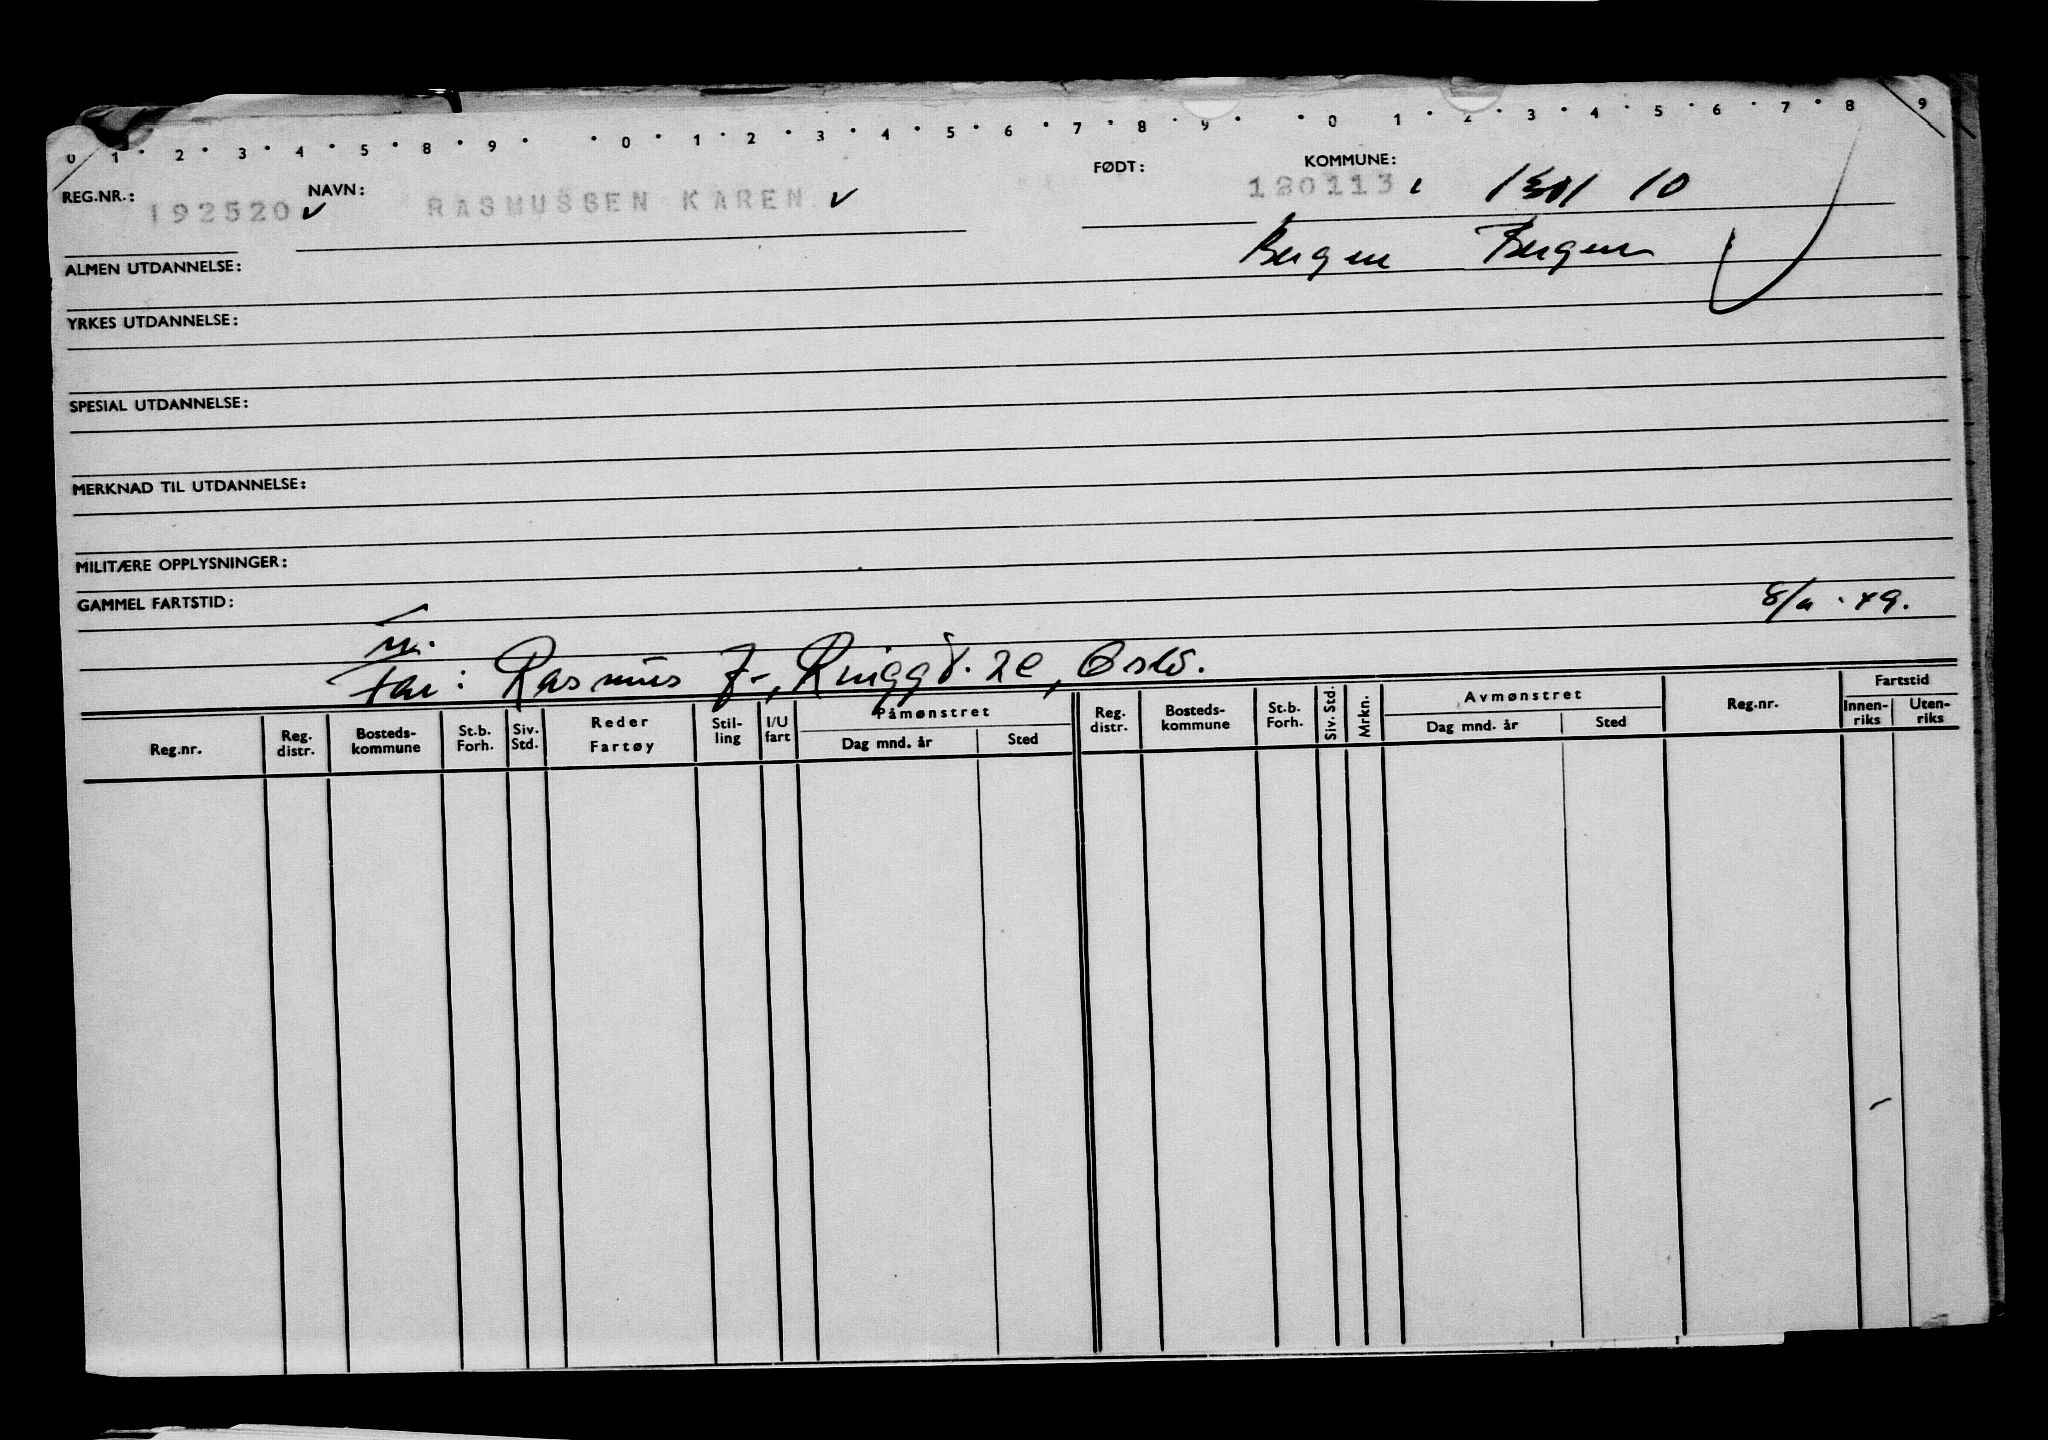 0 1 2 3 4 5 8 9 0 1 2 3 4 5 6 7 8 9 0 1 2 3 4 5 6 7 8 9
REG.NR.: 192520 NAVN: RASMUSSEN KAREN FØDT: 180113 KOMMUNE: 1301 10
Bergen Bergen
ALMEN UTDANNELSE:
YRKES UTDANNELSE:
SPESIAL UTDANNELSE:
MERKNAD TIL UTDANNELSE:
MILITÆRE OPPLYSNINGER:
GAMMEL FARTSTID:
Far: Rasmus J., Ringgd. 2e, Oslo.
Reg.nr. Reg. distr. Bosteds-kommune St.b. Forh. Siv. Std. Reder Fartøy Stil-ling I/U fart Påmønstret Dag mnd. år Sted Reg. distr. Bosteds-kommune St.b. Forh. Siv. Std. Mrkn. Avmønstret Dag mnd. år Sted Reg.nr. Fartstid Innen-riks Uten-riks